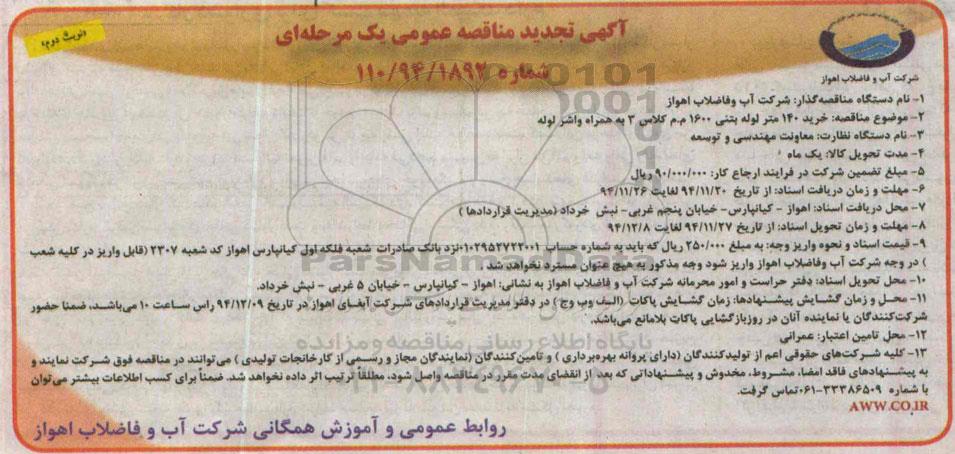 آگهی تجدید مناقصه عمومی یک مرحله‌ای
شماره ۱۱۰/۹۴/۱۸۹۲
«نوبت دوم»
شرکت آب و فاضلاب اهواز
۱- نام دستگاه مناقصه‌گذار: شرکت آب وفاضلاب اهواز
۲- موضوع مناقصه: خرید ۱۴۰ متر لوله بتنی ۱۶۰۰ م.م کلاس ۳ به همراه واشر لوله
۳- نام دستگاه نظارت: معاونت مهندسی و توسعه
۴- مدت تحویل کالا: یک ماه
۵- مبلغ تضمین شرکت در فرایند ارجاع کار: ۹۰/۰۰۰/۰۰۰ ریال
۶- مهلت و زمان دریافت اسناد: از تاریخ ۹۴/۱۱/۲۰ لغایت ۹۴/۱۱/۲۶
۷- محل دریافت اسناد: اهواز - کیانپارس- خیابان پنجم غربی- نبش خرداد (مدیریت قراردادها )
۸- مهلت و زمان تحویل اسناد: از تاریخ ۹۴/۱۱/۲۷ لغایت ۹۴/۱۲/۸
۹- قیمت اسناد و نحوه واریز وجه: به مبلغ ۲۵۰/۰۰۰ ریال که باید به شماره حساب ۰۱۰۲۹۵۲۷۲۲۰۰۱نزد بانک صادرات شعبه فلکه اول کیانپارس اهواز کد شعبه ۲۳۰۷ (قابل واریز در کلیه شعب
) در وجه شرکت آب وفاضلاب اهواز واریز شود وجه مذکور به هیچ عنوان مسترد نخواهد شد .
۱۰- محل تحویل اسناد: دفتر حراست و امور محرمانه شرکت آب و فاضلاب اهواز به نشانی: اهواز - کیانپارس - خیابان ۵ غربی - نبش خرداد.
۱۱- محل و زمان گشایش پیشنهادها: زمان گشایش پاکات (الف وب وج ) در دفتر مدیریت قراردادهای شرکت آبفای اهواز در تاریخ ۹۴/۱۲/۰۹ راس ساعت ۱۰ می‌باشد، ضمنا حضور
شرکت‌کنندگان یا نماینده آنان در روزبازگشایی پاکات بلامانع می‌باشد.
۱۲- محل تامین اعتبار: عمرانی
۱۳- کلیه شرکت‌های حقوقی اعم از تولیدکنندگان (دارای پروانه بهره‌برداری ) و تامین‌کنندگان (نمایندگان مجاز و رسمی از کارخانجات تولیدی ) می‌توانند در مناقصه فوق شرکت نمایند و
به پیشنهادهای فاقد امضا، مشروط، مخدوش و پیشنهاداتی که بعد از انقضای مدت مقرر در مناقصه واصل شود، مطلقاً ترتیب اثر داده نخواهد شد. ضمناً برای کسب اطلاعات بیشتر می‌توان
با شماره ۰۶۱-۳۳۳۸۶۵۰۹تماس گرفت.
AWW.CO.IR
روابط عمومی و آموزش همگانی شرکت آب و فاضلاب اهواز
ParsNamadData
پایگاه اطلاع رسانی مناقصه و مزایده